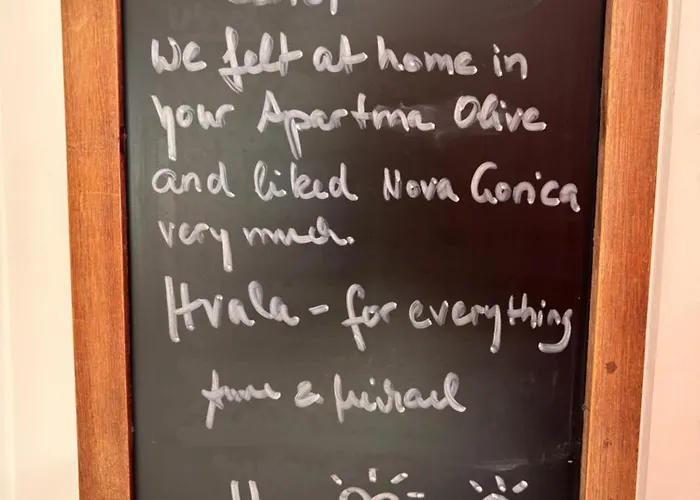 We felt at home in
your Apartma Olive
and liked Nova Gorica
very much.
Hvala - for everything
&